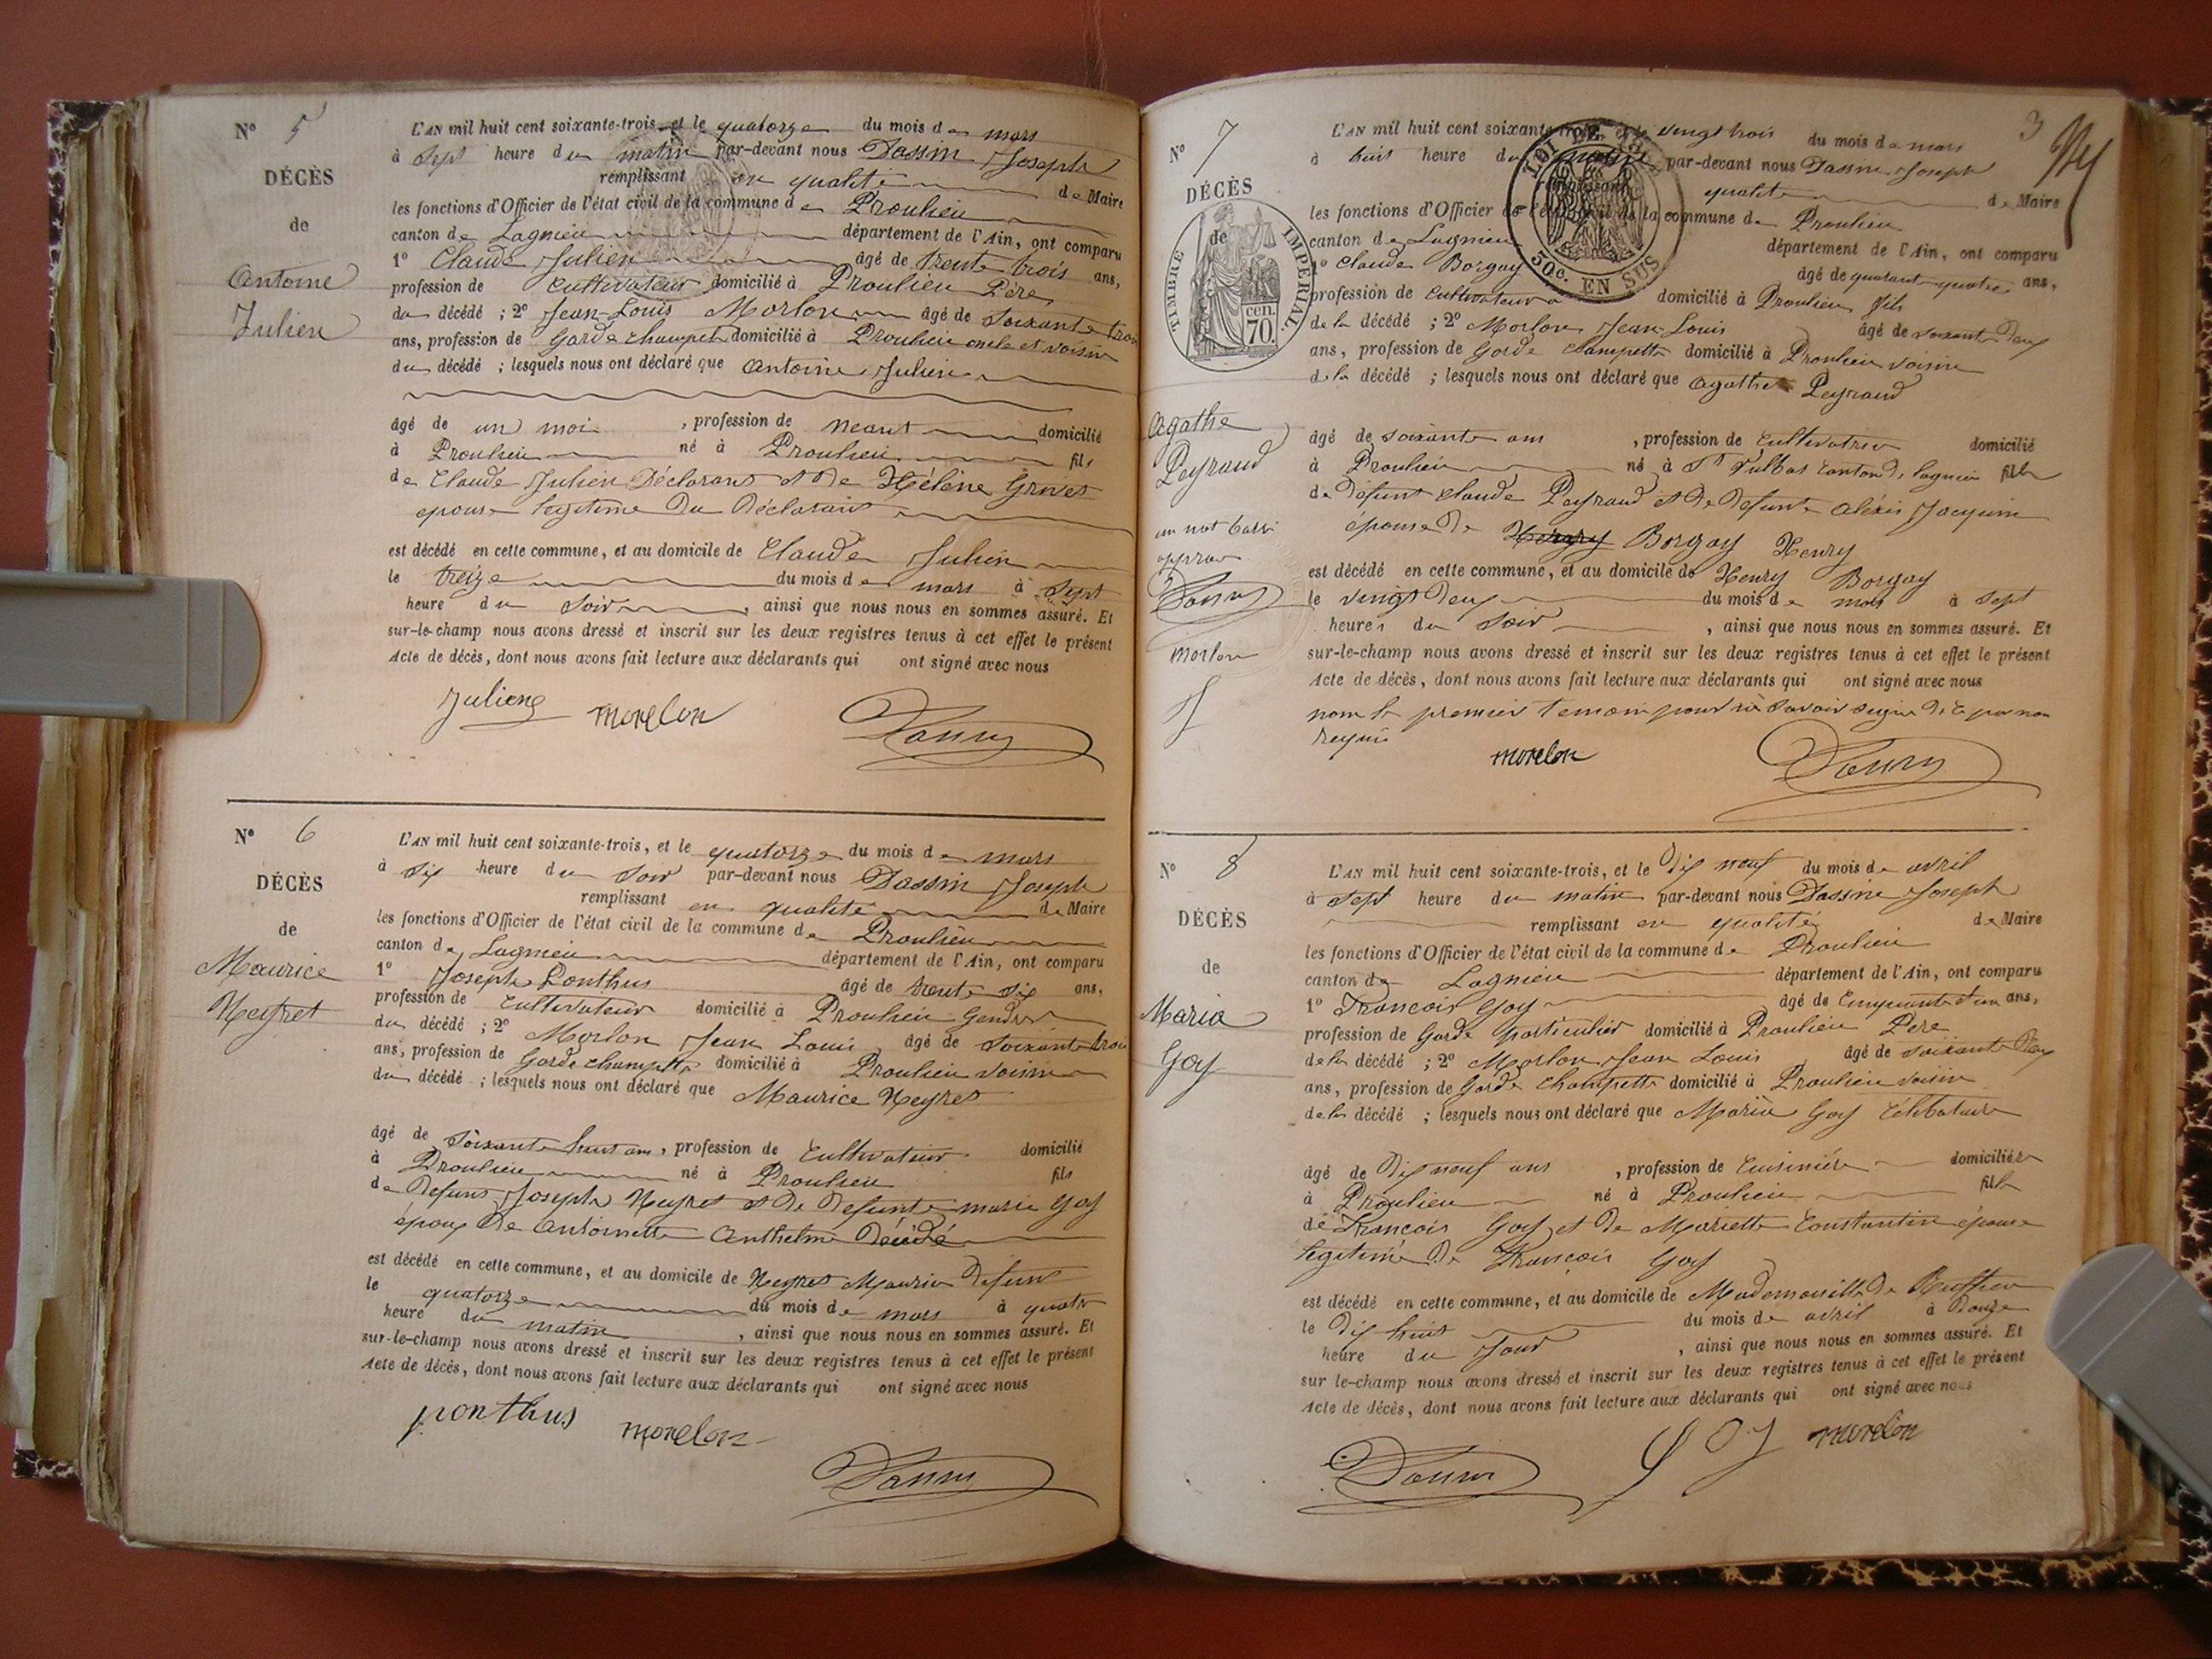 N° 5
DÉCÈS
de
Antoine
Julien
L'AN mil huit cent soixante-trois, et le quatorze du mois de mars
à Sept heure du matin par-devant nous Dassin Joseph
remplissant en qualité de Maire
les fonctions d'Officier de l'état civil de la commune de Proulieu
canton de Lagnieu département de l'Ain, ont comparu
1° Claude Julien âgé de trente trois ans,
profession de Cultivateur domicilié à Proulieu Père
du décédé ; 2° Jean-Louis Morlon âgé de Soixante trois
ans, profession de Garde champet domicilié à Proulieu oncle et voisin
du décédé ; lesquels nous ont déclaré que Antoine Julien
âgé de un moi , profession de neant domicilié
à Proulieu né à Proulieu fils
de Claude Julien Déclarant et de Hélène
epouse legitime du Déclarant
est décédé en cette commune, et au domicile de Claude Julien
le treize du mois de mars à Sept
heure du Soir , ainsi que nous nous en sommes assuré. Et
sur-le-champ nous avons dressé et inscrit sur les deux registres tenus à cet effet le présent
Acte de décès, dont nous avons fait lecture aux déclarants qui ont signé avec nous
Julien morelon
N° 6
DÉCÈS
de
Maurice
Neyret
L'AN mil huit cent soixante-trois, et le quatorze du mois de mars
à Six heure du Soir par-devant nous Dassin Joseph
remplissant en qualité de Maire
les fonctions d'Officier de l'état civil de la commune de Proulieu
canton de Lagnieu département de l'Ain, ont comparu
1° Joseph Ponthus âgé de trente six ans,
profession de Cultivateur domicilié à Proulieu Gendre
du décédé ; 2° Morlon Jean Louis âgé de Soixante trois
ans, profession de Garde champette domicilié à Proulieu voisin
du décédé ; lesquels nous ont déclaré que Maurice Neyret
âgé de Soixante huit ans , profession de Cultivateur domicilié
à Proulieu né à Proulieu fils
de Defunt Joseph Neyret et de Defunte marie Goy
époux de Antoinette Anthelme Décédé
est décédé en cette commune, et au domicile de Neyret Maurice Defunt
le quatorze du mois de mars à quatre
heure du matin , ainsi que nous nous en sommes assuré. Et
sur-le-champ nous avons dressé et inscrit sur les deux registres tenus à cet effet le présent
Acte de décès, dont nous avons fait lecture aux déclarants qui ont signé avec nous
ponthus morelon
3
N° 7
DÉCÈS
de
TIMBRE IMPERIAL
cen. 70.
30c. EN SUS
Agathe
Peyraud
un mot barré
approuv
Morlon
L'AN mil huit cent soixante-trois, et le vingt trois du mois de mars
à huit heure du matin par-devant nous Dassin Joseph
remplissant qualité de Maire
les fonctions d'Officier de l'état civil de la commune de Proulieu
canton de Lagnieu département de l'Ain, ont comparu
1° Claude Borgay âgé de quarante quatre ans,
profession de Cultivateur domicilié à Proulieu fils
de la décédé ; 2° Morlon Jean-Louis âgé de soixante Deux
ans, profession de Garde champette domicilié à Proulieu voisin
de la décédé ; lesquels nous ont déclaré que Agathe Peyraud
âgé de soixante ans , profession de Cultivatrice domicilié
à Proulieu né à St Vulbas Canton de lagnieu fille
de Défunt Claude Peyraud et de Defunte Aléxis Jacquin
épouse de Borgay Henry
est décédé en cette commune, et au domicile de Henry Borgay
le vingt Deux du mois de mars à Sept
heures du Soir , ainsi que nous nous en sommes assuré. Et
sur-le-champ nous avons dressé et inscrit sur les deux registres tenus à cet effet le présent
Acte de décès, dont nous avons fait lecture aux déclarants qui ont signé avec nous
non le premier temoin pour ne savoir signe de ce par nou
requis
morelon
N° 8
DÉCÈS
de
Maria
Goy
L'AN mil huit cent soixante-trois, et le Dix neuf du mois de avril
à Sept heure du matin par-devant nous Dassin Joseph
remplissant en qualité de Maire
les fonctions d'Officier de l'état civil de la commune de Proulieu
canton de Lagnieu département de l'Ain, ont comparu
1° Francois Goy âgé de Cinquante et un ans,
profession de Garde particulier domicilié à Proulieu Pere
de la décédé ; 2° Morlon Jean Louis âgé de soixante Deux
ans, profession de Garde Champette domicilié à Proulieu voisin
de la décédé ; lesquels nous ont déclaré que Maria Goy Célibataire
âgé de Dix neuf ans , profession de Cuisinière domiciliée
à Proulieu né à Proulieu fille
de Francois Goy et de Mariette Constantin épouse
legitime de Francois Goy
est décédé en cette commune, et au domicile de Mademoiselle de
le Dix huit du mois de avril à Douze
heure du Jour , ainsi que nous nous en sommes assuré. Et
sur le-champ nous avons dressé et inscrit sur les deux registres tenus à cet effet le présent
Acte de décès, dont nous avons fait lecture aux déclarants qui ont signé avec nous
goy morelon